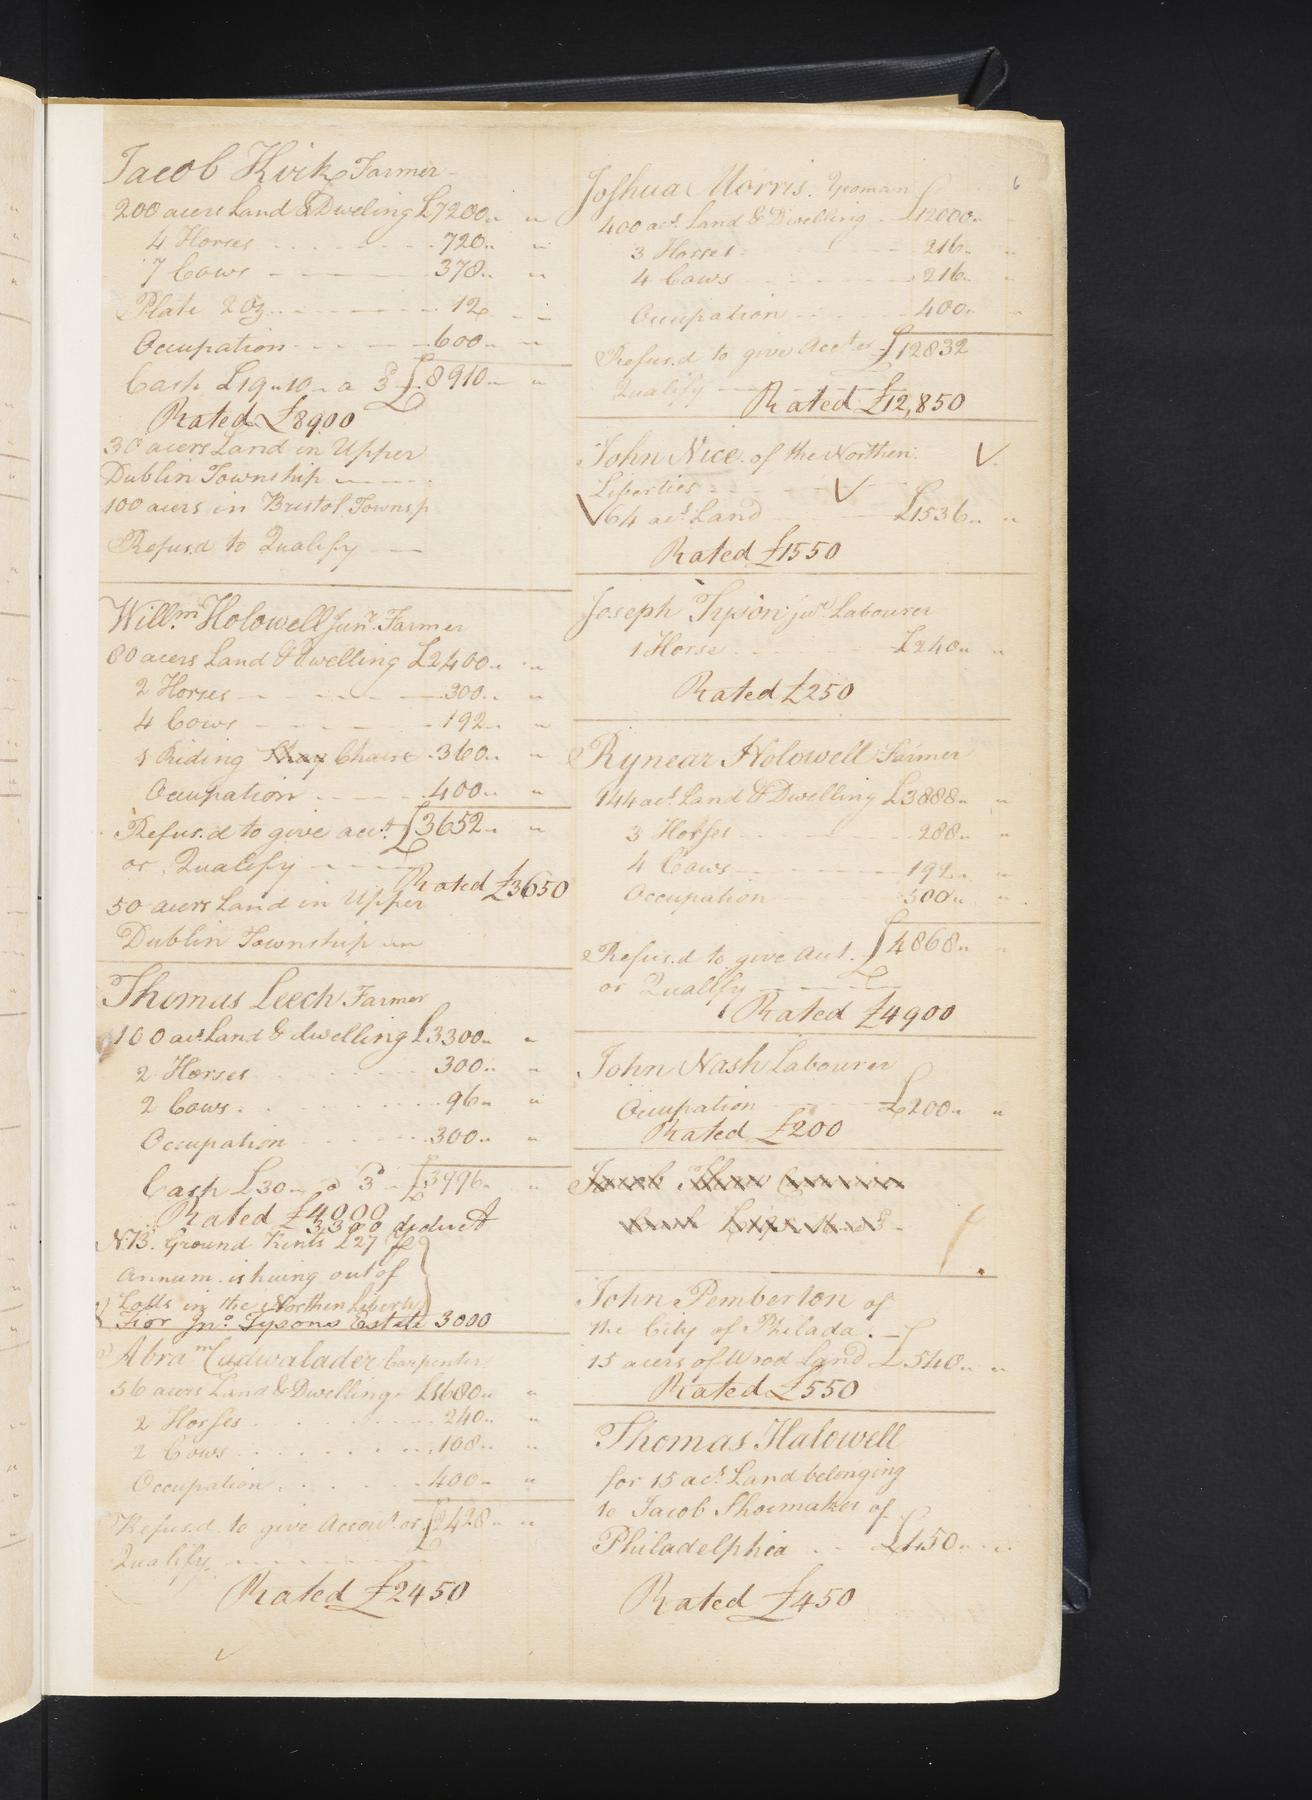 Jacob Kirk Farmer
200 acers Land & Dweling £7200
4 Horses 720
7 Cows 378
Plate 2 Oz 12
Occupation 600
Cash £19"10 a 3 £8910
Rated £8900
30 acers Land in Upper
Dublin Township
100 acers in Bristol Townsp
Refus.d to Qualify
Will.m Holowell Jun.r Farmer
80 acers Land & Dwelling £2400
2 Horses 300
4 Cows 192
1 Riding Chaire 360
Occupation 400
Refus.d to give acct. £3652
or Qualify
Rated £3650
50 acers Land in Upper
Dublin Township
Thomas Leech Farmer
100 acs. Land & dwelling £3300
2 Horses 300
2 Cows 96
Occupation 300
Cash £30 a 3 £3996
Rated £4000
3300 deduct
N:B. Ground Rents £27 Per
Annum is huing out of
Lotts in the Northen Liberty
For Jno. Tysons Estate 3000
Abra.m Cudwalader Carpenter
56 acers Land & Dwelling £1680
2 Horses 240
2 Cows 108
Occupation 400
Refus.d to give Accout. or £2428
Qualify
Rated £2450
6
Joshua Morris. Yeoman
400 acs. Land & Dwelling £12000
3 Horses 216
4 Cows 216
Occupation 400
Refus.d to give Acct or £12832
Qualify
Rated £12,850
John Nice of the Northen
Liberties
64 acs. Land £1536
Rated £1550
Joseph Tyson junr. Labourer
1 Horse £240
Rated £250
Rynear Holowell Farmer
144 acs. Land & Dwelling £3888
3 Horses 288
4 Cows 192
Occupation 500
Refus.d to give Acct. £4868
or Qualify
Rated £4900
John Nash Labourer
Occupation £200
Rated £200
John Pemberton of
the City of Philada.
15 acers of Wood Land £540
Rated £550
Thomas Halowell
for 15 acs. Land belonging
to Jacob Shoemaker of
Philadelphia £450
Rated £450